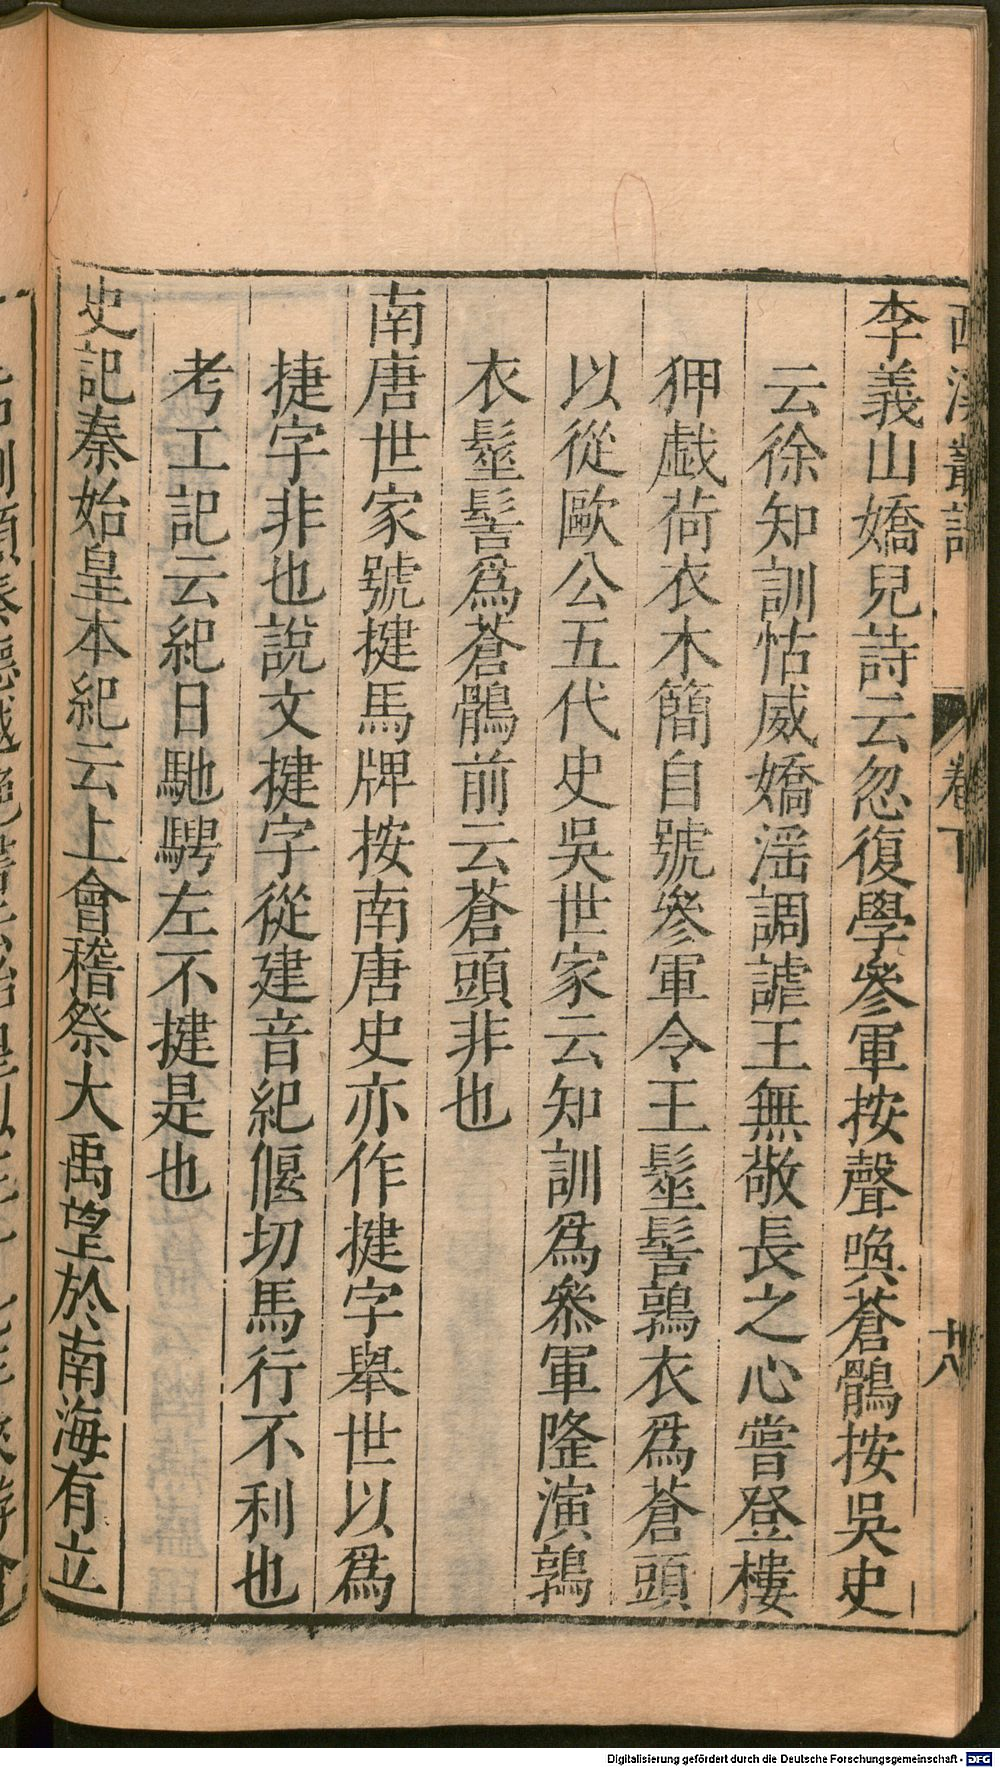 西溪叢語
卷下
十八
李義山嬌兒詩云忽復學參軍按聲喚蒼鶻按吳史
云徐知訓怙威嬌淫調謔王無敬長之心嘗登樓
狎戲荷衣木簡自號參軍令王髽髻鶉衣爲蒼頭
以從歐公五代史吳世家云知訓爲參軍隆演鶉
衣髽髻爲蒼鶻前云蒼頭非也
南唐世家號揵馬牌按南唐史亦作揵字舉世以爲
捷字非也說文揵字從建音紀偃切馬行不利也
考工記云紀日馳騁左不揵是也
史記秦始皇本紀云上會稽祭大禹望於南海有立
Digitalisierung gefördert durch die Deutsche Forschungsgemeinschaft - DFG